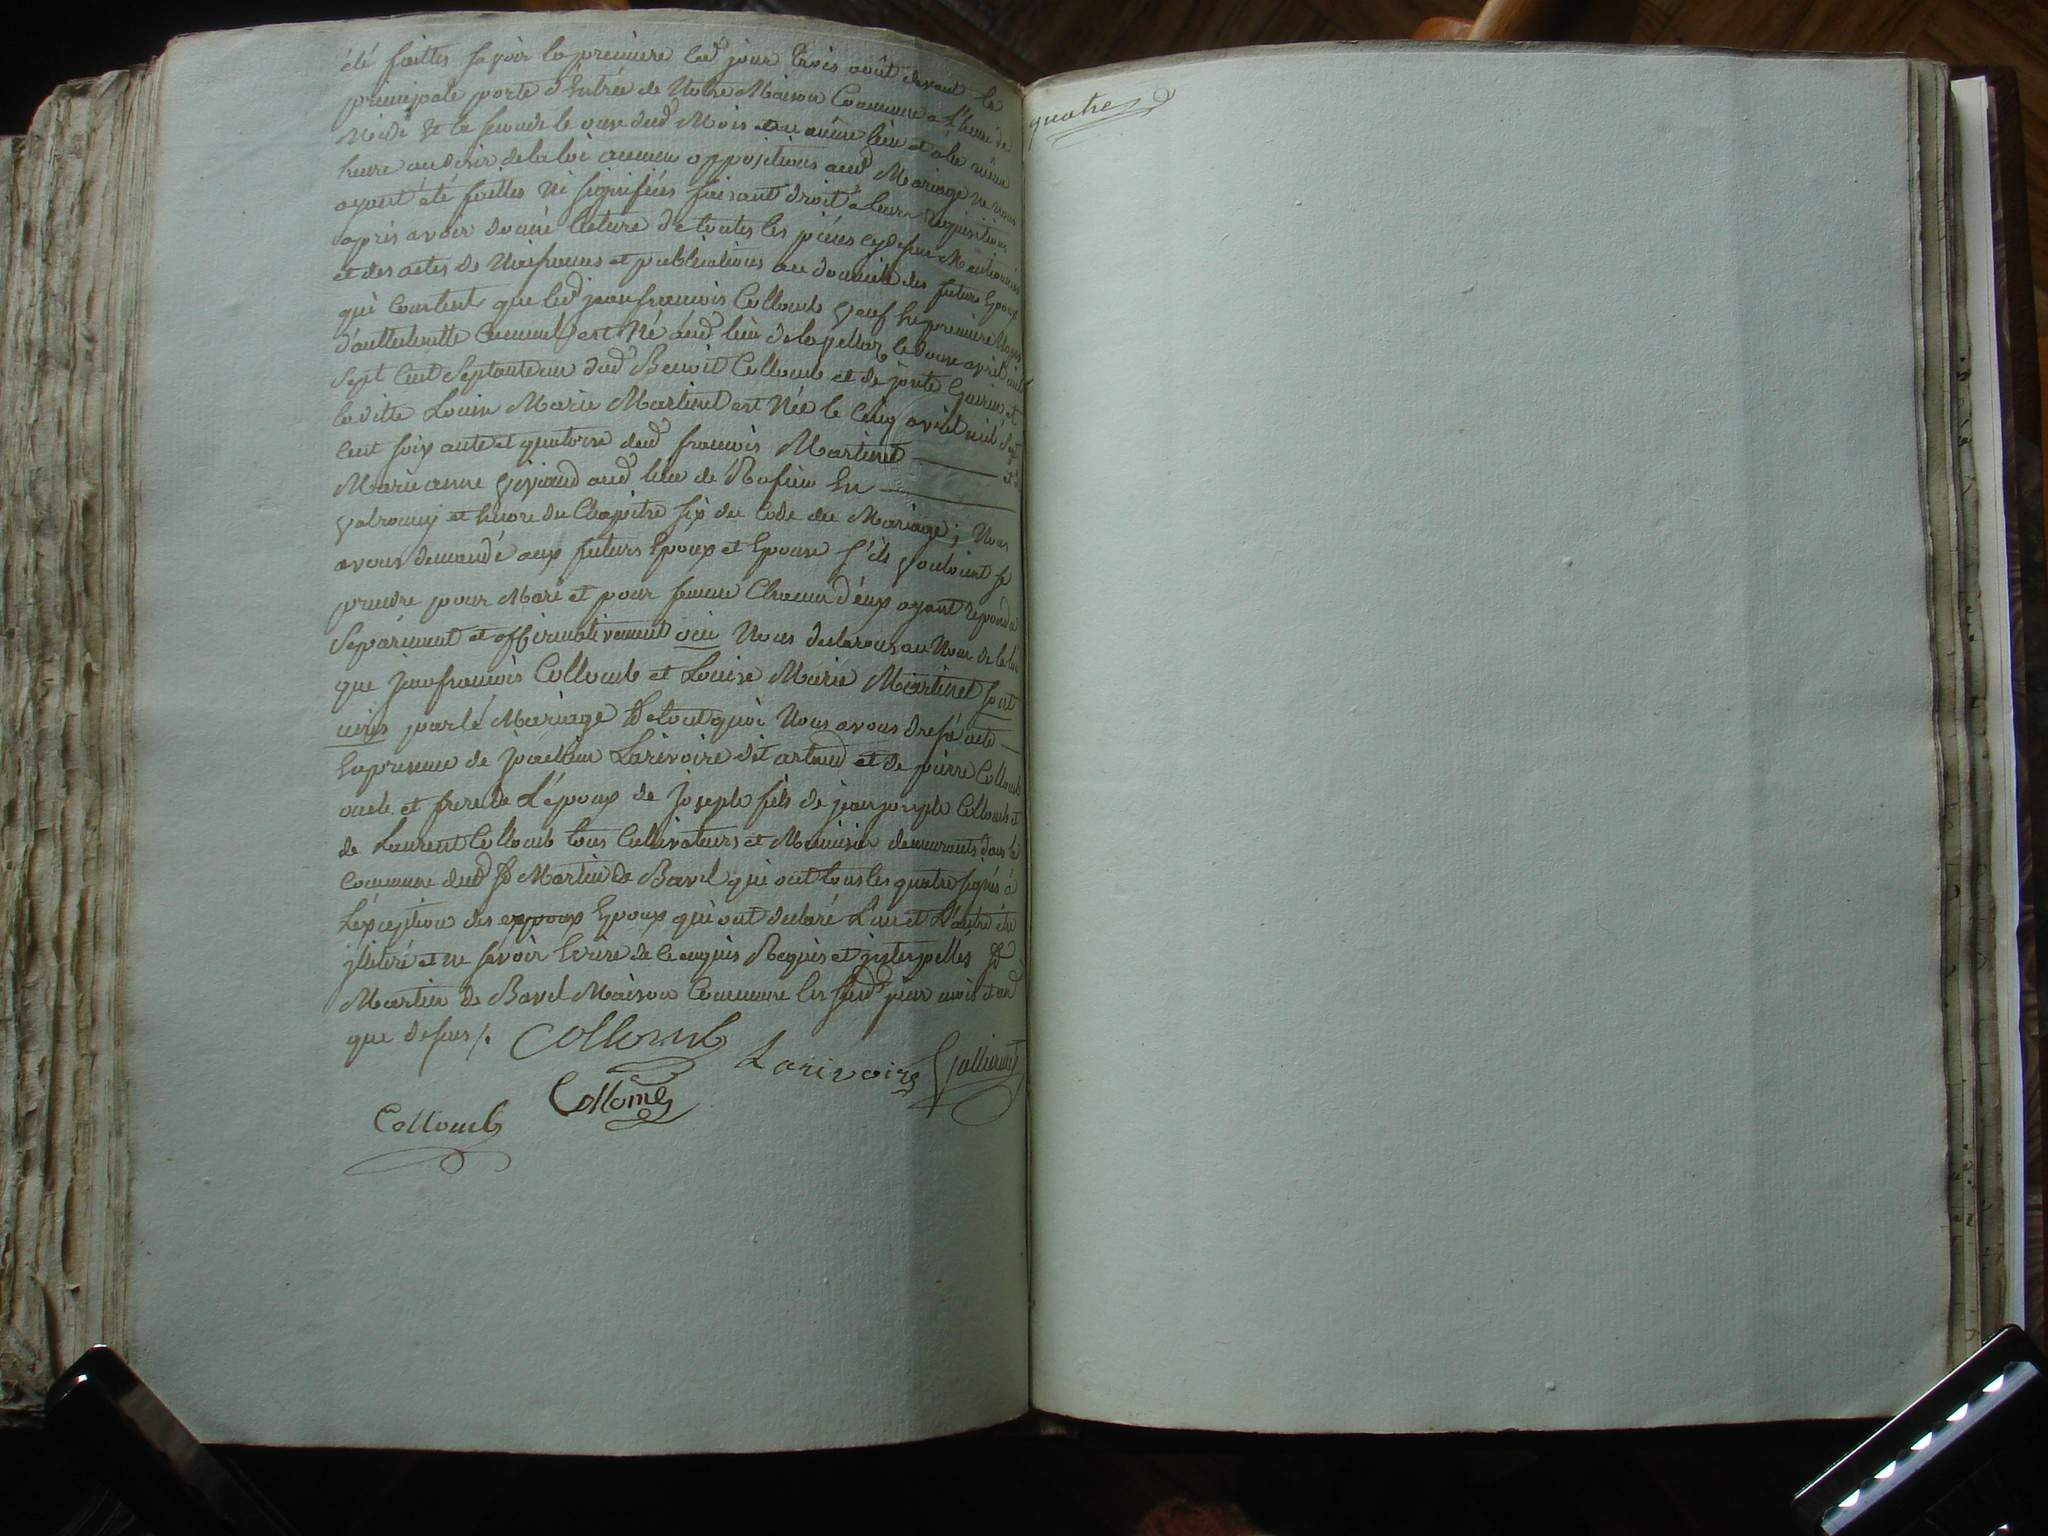 été faittes sçavoir la premiere led jour trois août devant la
principale porte d'Entrée de Notre Maison Commune a L'heure de
Midi & la seconde le onze dud Mois au même lieu et a la même
heure au desir de la loi aucunes oppositions aud Mariage ne nous
ayant été faittes ni signifiées faisant droit a leur requisition
après avoir donné lecture de toutes les pièces cy dessus Mentionnées
et des actes de Naissances et publications au domicile des futurs Epoux
qui constent que led jean françois Collomb Veuf En premiere Noces
est Né aud lieu de le Douze avril mil
Sept Cent Septante un dud Benoit Collomb et de Guerin et
la ditte Louise Marie Martinet est Née le Cinq avril mil Sept
Cent soixante et quatorze dud françois Martinet — et de
Marie anne Viviand aud lieu de Rufieu En —
Valromey et Encore du Chapitre six du Code du Mariage; Nous
avons demandé aux futurs Epoux et Epouse s'ils vouloient se
prendre pour Mari et pour femme Chacun d'eux ayant repondu
Separement et affirmativement oui Nous declarons au Nom de la loi
que jean françois Collomb et Louise Marie Martinet sont
unis par le Mariage De tout quoi Nous avons dressé acte —
En presence de Joachim Larivoire dit artaud et de pierre Collomb
oncle et frere de L'époux de Joseph fils de jean joseph Collomb et
de Laurent Collomb tous Cultivateurs et Menuisier demeurants dans la
Commune dud St Martin de Bavel qui ont tous les quatre signés à
L'exception des expoux Epoux qui ont declaré L'un et L'autre être
jlliteré et ne savoir Ecrire de ce enquis Requis et jnterpellés St
Martin de Bavel Maison Commune les susd jour mois et an
que dessus /. Collomb
Larivoire
Collomb
Collomb
quatre